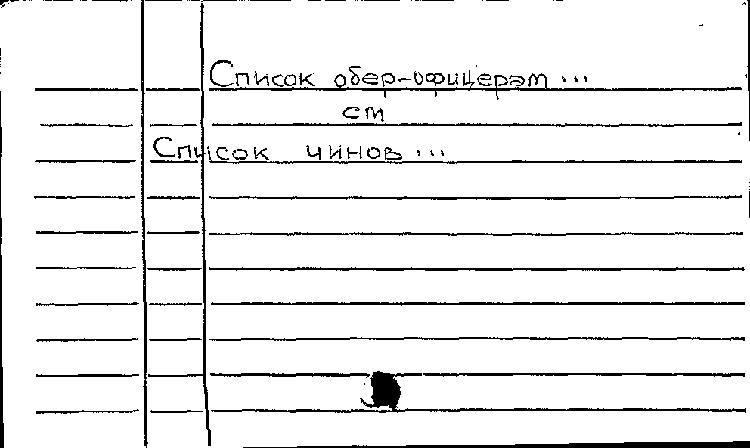 Список обер-офицерам ...
см
Список чинов ...